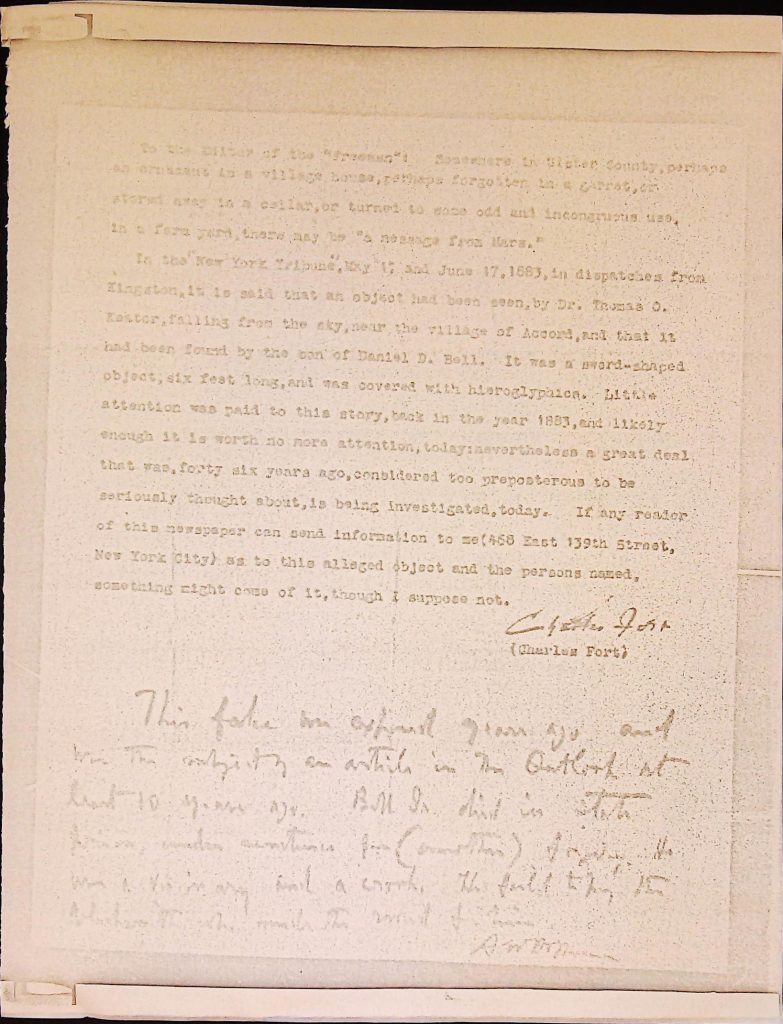 To the Editor of the "Freeman": Somewhere in Ulster County,perhaps
an ornament in a village house,perhaps forgotten in a garret,or
stored away in a cellar,or turned to some odd and incongruous use,
in a farm yard,there may be "a message from Mars."
In the "New York Tribune",May and June 17,1883,in dispatches from
Kingston,it is said that an object had been seen,by Dr. Thomas O.
Keator,falling from the sky,near the village of Accord,and that it
had been found by the son of Daniel D. Bell. It was a sword-shaped
object,six feet long,and was covered with hieroglyphics. Little
attention was paid to this story,back in the year 1883,and likely
enough it is worth no more attention,today:nevertheless a great deal
that was,forty six years ago,considered too preposterous to be
seriously thought about,is being investigated,today. If any reader
of this newspaper can send information to me(468 East 139th Street,
New York City) as to this alleged object and the persons named,
something might come of it,though I suppose not.
Charles Fort
(Charles Fort)
This fake was exposed years ago and
was the subject of an article in the Outlook at
least 10 years ago. Bell Jr. died in state
prison, under sentence for (another) forgery. He
was a visionary and a crook. He the
who made the sword for him